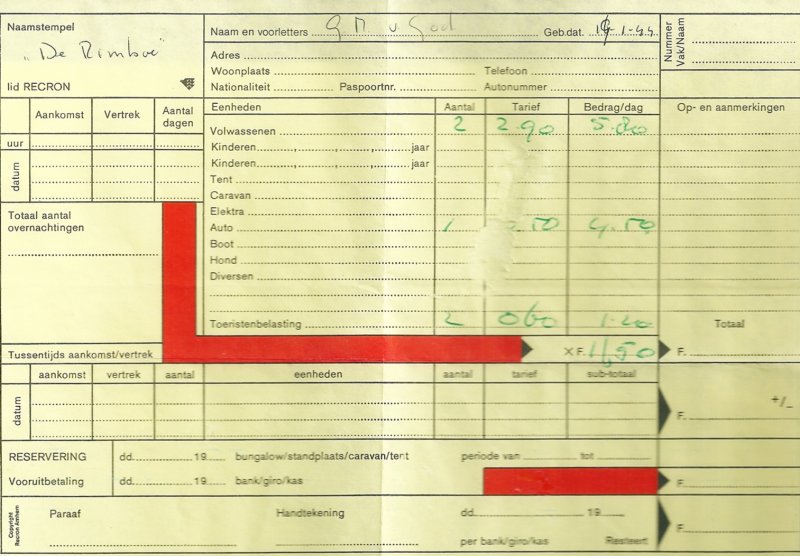 Naamstempel
„De Rimboe"
lid RECRON
Naam en voorletters G.M. v. God Geb.dat. -1-44
Adres
Woonplaats Telefoon
Nationaliteit Paspoortnr. Autonummer
Nummer
Vak/Naam
Aankomst Vertrek Aantal dagen
uur
datum
Totaal aantal
overnachtingen
Eenheden Aantal Tarief Bedrag/dag
Volwassenen 2 2.90 5.80
Kinderen , , jaar
Kinderen , , jaar
Tent
Caravan
Elektra
Auto 1 .50 4.50
Boot
Hond
Diversen
Toeristenbelasting 2 060 1.20
Op- en aanmerkingen
Totaal
Tussentijds aankomst/vertrek
X F. 11,50 F.
aankomst vertrek aantal eenheden aantal tarief sub-totaal
datum
+/_
F.
RESERVERING dd. 19 bungalow/standplaats/caravan/tent periode van tot
Vooruitbetaling dd. 19 bank/giro/kas F.
Copyright
Recron Arnhem
Paraaf Handtekening dd. 19
per bank/giro/kas Resteert F.